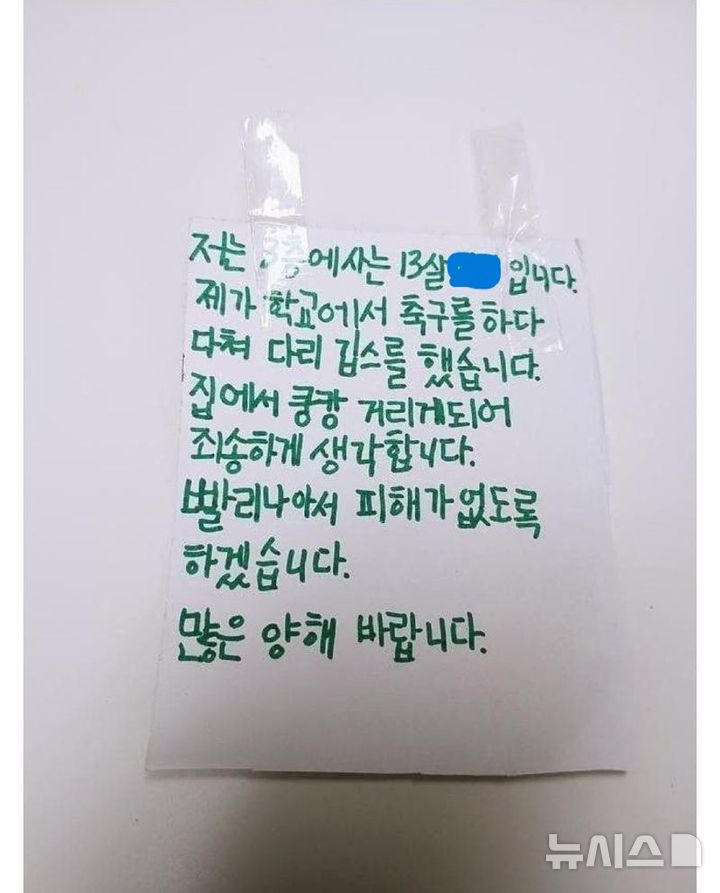 저는 3층에사는 13살 입니다.
제가 학교에서 축구를 하다
다쳐 다리 깁스를 했습니다.
집에서 쿵캉 거리게되어
죄송하게 생각합니다.
빨리나아서 피해가없도록
하겠습니다.
많은 양해 바랍니다.
뉴시스